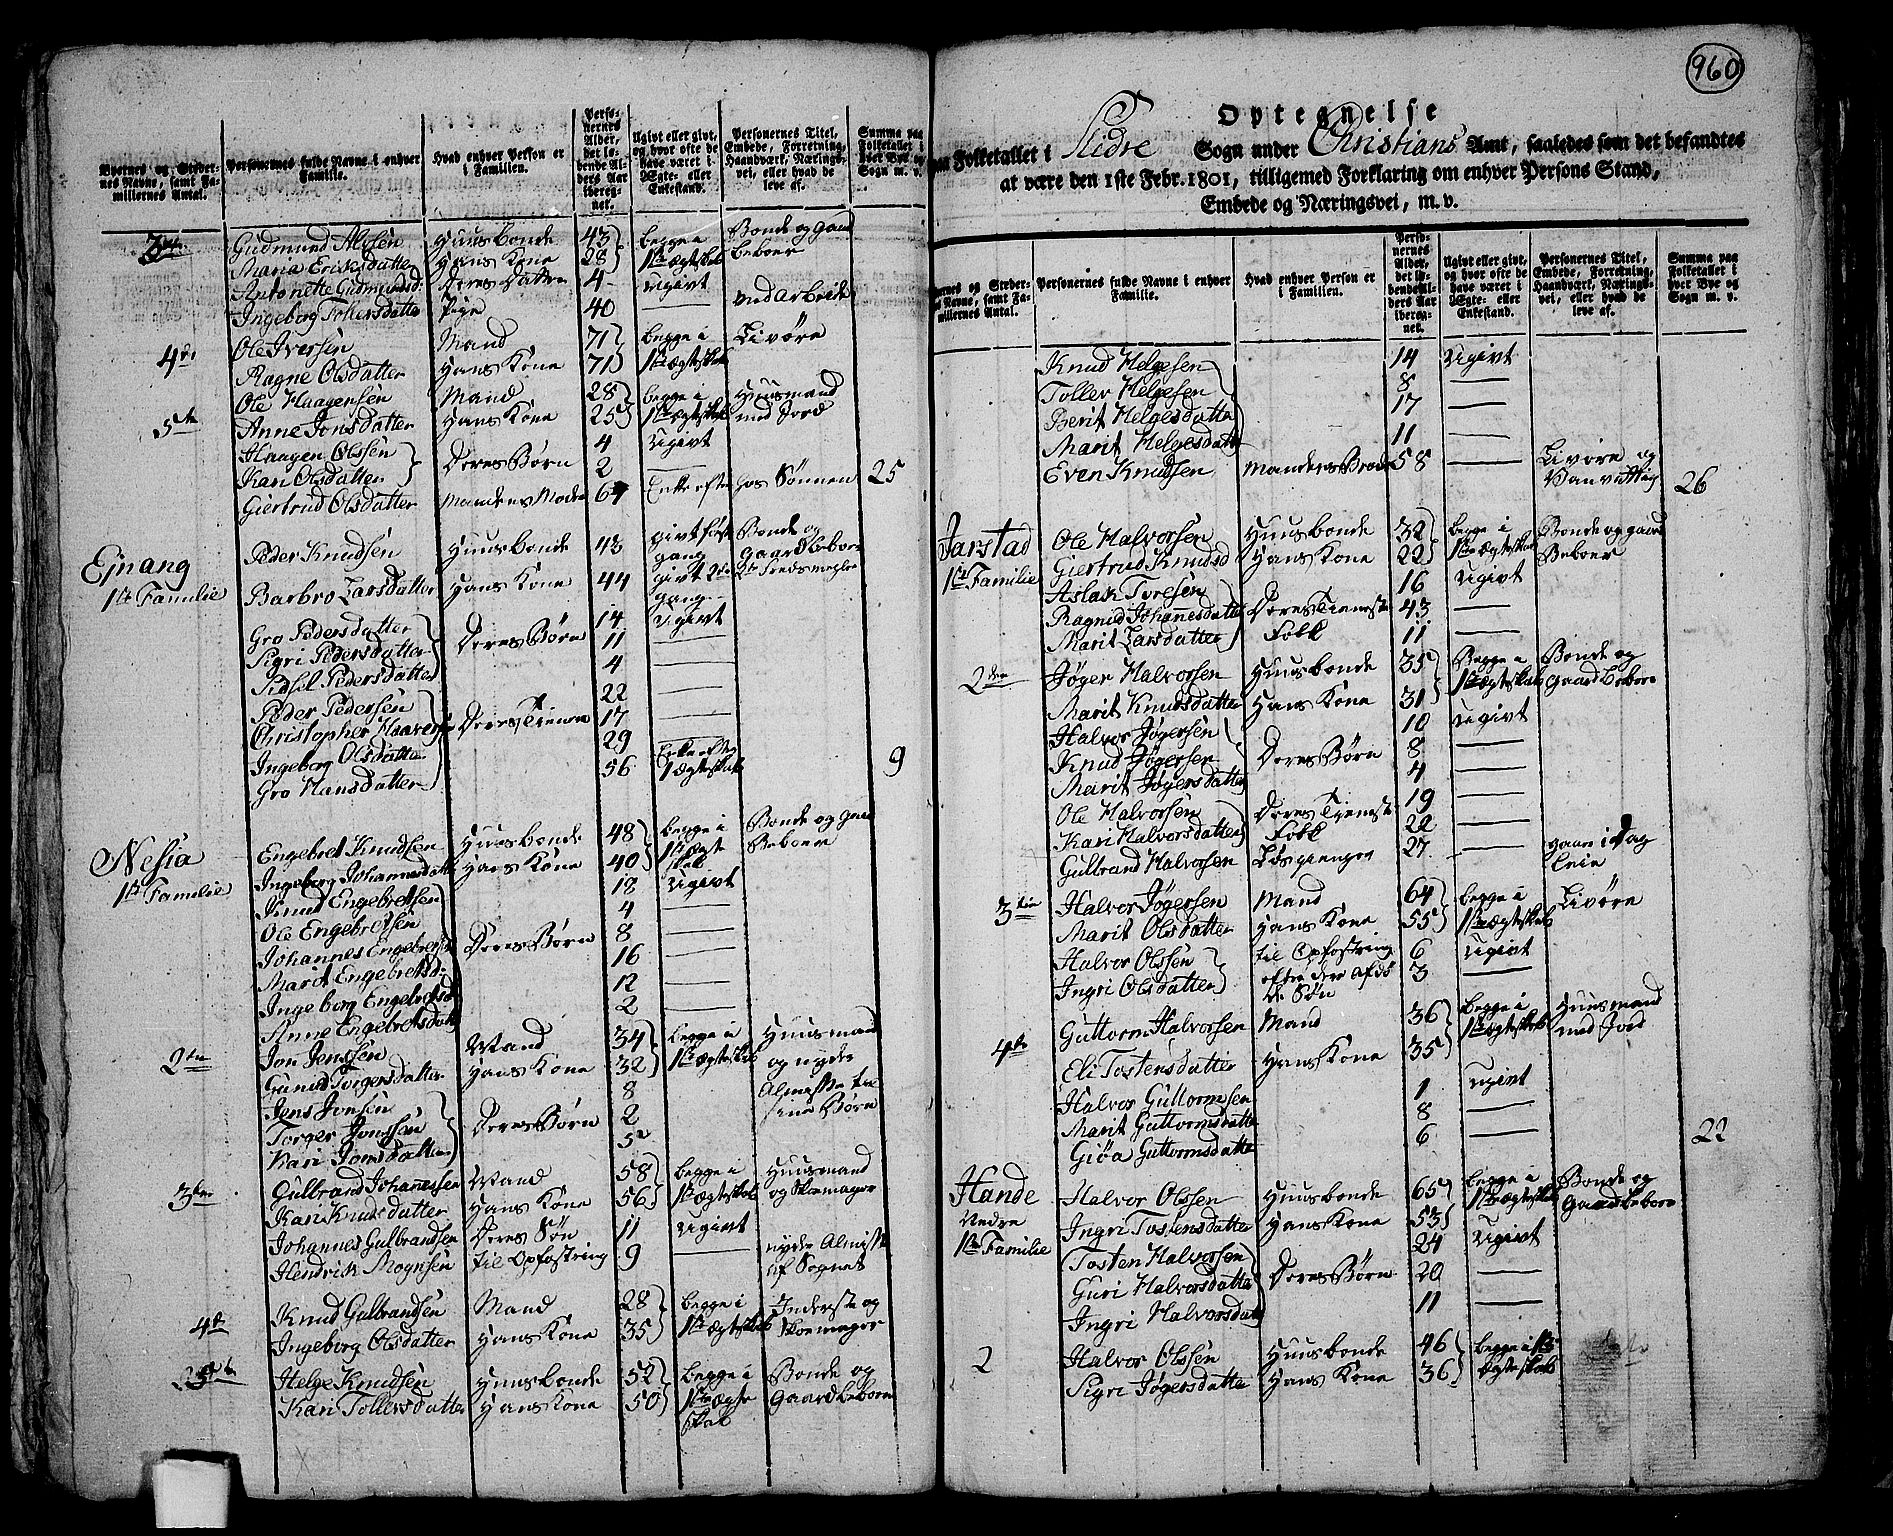 960
Gaardenes og Stedernes Navne, samt Familiernes Antal.
Personernes fulde Navne i enhver Familie.
Hvad enhver Person er i Familien.
Personernes Alder, det løbende Alders Aar iberegnet.
Ugivt eller givt, og hvor ofte de have været i Ægte- eller Enkestand.
Personernes Titel, Embede, Forretning, Haandværk, Næringsvei, eller hvad de leve af.
Summa paa Folketallet i hver Bye og Sogn m. v.
3die Gudmund Alvsen Huusbonde 43 begge i Bonde og gaard
Maria Eriksdatter Hans Kone 28 1ste Ægteskab beboer
Antonette Gudmundsd Deres Datter 4 ugivt
Ingeborg Tollersdatter Pige 40 — ved Arbeide
4de Ole Iversen Mand 71 begge i Livøre
Ragne Olsdatter Hans Kone 71 1ste Ægteskab
5te Ole Haagensen Mand 28 begge i Huusmand
Anne Jonsdatter Hans Kone 25 1ste Ægteskab med Jord
Haagen Olssen 4 ugivt
Kari Olsdatter Deres Børn 2 —
Giertrud Olsdatter Mandens Moder 67 Enke efter hos Sønnen 25
Ejnang Peder Knudsen Huusbonde 43 givt først gang Bonde og Gaardbeboer
1ste Familie Barbro Larsdatter Hans Kone 44 givt 2den gang
Gro Pedersdatter 14 ugivt
Sigri Pedersdatter Deres Børn 11 —
Sidsil Pedersdatter 4 —
Peder Pedersen 22 —
Christopher Haavers Deres Tienere 17 —
Ingeborg Olsdatter 29 —
Gro Hansdatter 56 Enke efter 1 Ægteskab 9
Nesia Engebret Knudsen Huusbonde 48 begge i Bonde og Gaard
1ste Familie Ingeborg Johannesdatter Hans Kone 40 1ste Ægteskab Beboer
Knud Engebretsen 18 ugivt
Ole Engebretsen 4 —
Johannes Engebretsen Deres Børn 8 —
Marit Engebretsd 16 —
Ingeborg Engebretsd 12 —
Anne Engebretsdatt 2 —
2den Jon Jonssen Mand 34 begge i Huusmand
Gunild Torgersdatter Hans Kone 32 1ste Ægteskab og nyder
Jens Jonsen 8 Almisse til
Torger Jonssen Deres Børn 2 sine Børn
Kari Jonsdatter 5
3die Gulbrand Johannessen Mand 58 begge i Huusmand
Kari Knudsdatter Hans Kone 56 1ste Ægteskab og Skomager
Johannes Gulbrandsen Deres Søn 11 ugivt
Hendrik Mognsen til Opfostring 9 — nyder Almisse af Sognet
4de Knud Gulbrandsen Mand 28 begge i Inderste og
Ingeborg Olsdatter Hans Kone 35 1ste Ægteskab Skomager
Helge Knudsen Huusbonde 52 begge i Bonde og
Kari Tollersdatter Hans Kone 50 1ste Ægteskab Gaardbeboer
Optegnelse
paa Folketallet i Slidre Sogn under Christians Amt, saaledes som det befandtes
at være den 1ste Febr. 1801, tilligemed Forklaring om enhver Persons Stand,
Embede og Næringsvei, m. v.
Gaardenes og Stedernes Navne, samt Familiernes Antal.
Personernes fulde Navne i enhver Familie.
Hvad enhver Person er i Familien.
Personernes Alder, det løbende Alders Aar iberegnet.
Ugivt eller givt, og hvor ofte de have været i Ægte- eller Enkestand.
Personernes Titel, Embede, Forretning, Haandværk, Næringsvei, eller hvad de leve af.
Summa paa Folketallet i hver Bye og Sogn m. v.
Knud Helgesen 14 ugivt
Toller Helgesen 8 —
Berit Helgesdatter 17 —
Marit Helgesdatt 11 —
Even Knudsen Mandens Broder 58 — Livøre og Vanvittig 26
Jarstad Ole Halvorsen Huusbonde 32 begge i Bonde og gaard
1ste Familie Giertrud Knudsd Hans Kone 22 1ste Ægteskab Beboer
Aslak Toresen 16 ugivt
Ragnid Johannesdatter Deres Tieneste 43 —
Marit Larsdatter Folk 11 —
2den Jøger Halvorsen Huusbonde 35 Begge i Bonde og
Marit Knudsdatter Hans Kone 31 1ste Ægteskab Gaardbeboer
Halvor Jøgersen 10 ugivt
Knud Jøgersen Deres Børn 8 —
Marit Jøgersdatter 4 —
Ole Halvorsen Deres Tjeneste 19 —
Kari Halvorsdatter Folk 22 —
Gulbrand Halvorsen Løsgienger 27 — gaar i Dag leie
3die Halvor Jøgersen Mand 64 begge i Livøre
Marit Olsdatter Hans Kone 55 1ste Ægteskab
Halvor Olssen til Opfostring 6 ugivt
Ingri Olsdatter efter der afdøde Søn 3 —
4de Guttorm Halvorsen Mand 36 begge i Huusmand
Eli Tostensdatter Hans Kone 35 1ste Ægteskab med Jord
Halvor Guttormsen 1 ugivt
Marit Guttormsdatter 8 —
Giøa Guttormsdatte 6 — 22
Hande Halvor Olssen Huusbonde 65 begge i Bonde og
Nedre Ingri Tostensdatter Hans Kone 53 1ste Ægteskab Gaardbeboer
1ste Familie Tosten Halvorsen 24 ugivt
Guri Halvorsdatter Deres Børn 20 —
Ingri Halvorsdatt 11 —
2 Halvor Olssen Huusbonde 46 begge i 1ste
Sigri Jøgersdatter Hans Kone 36 Ægteskab